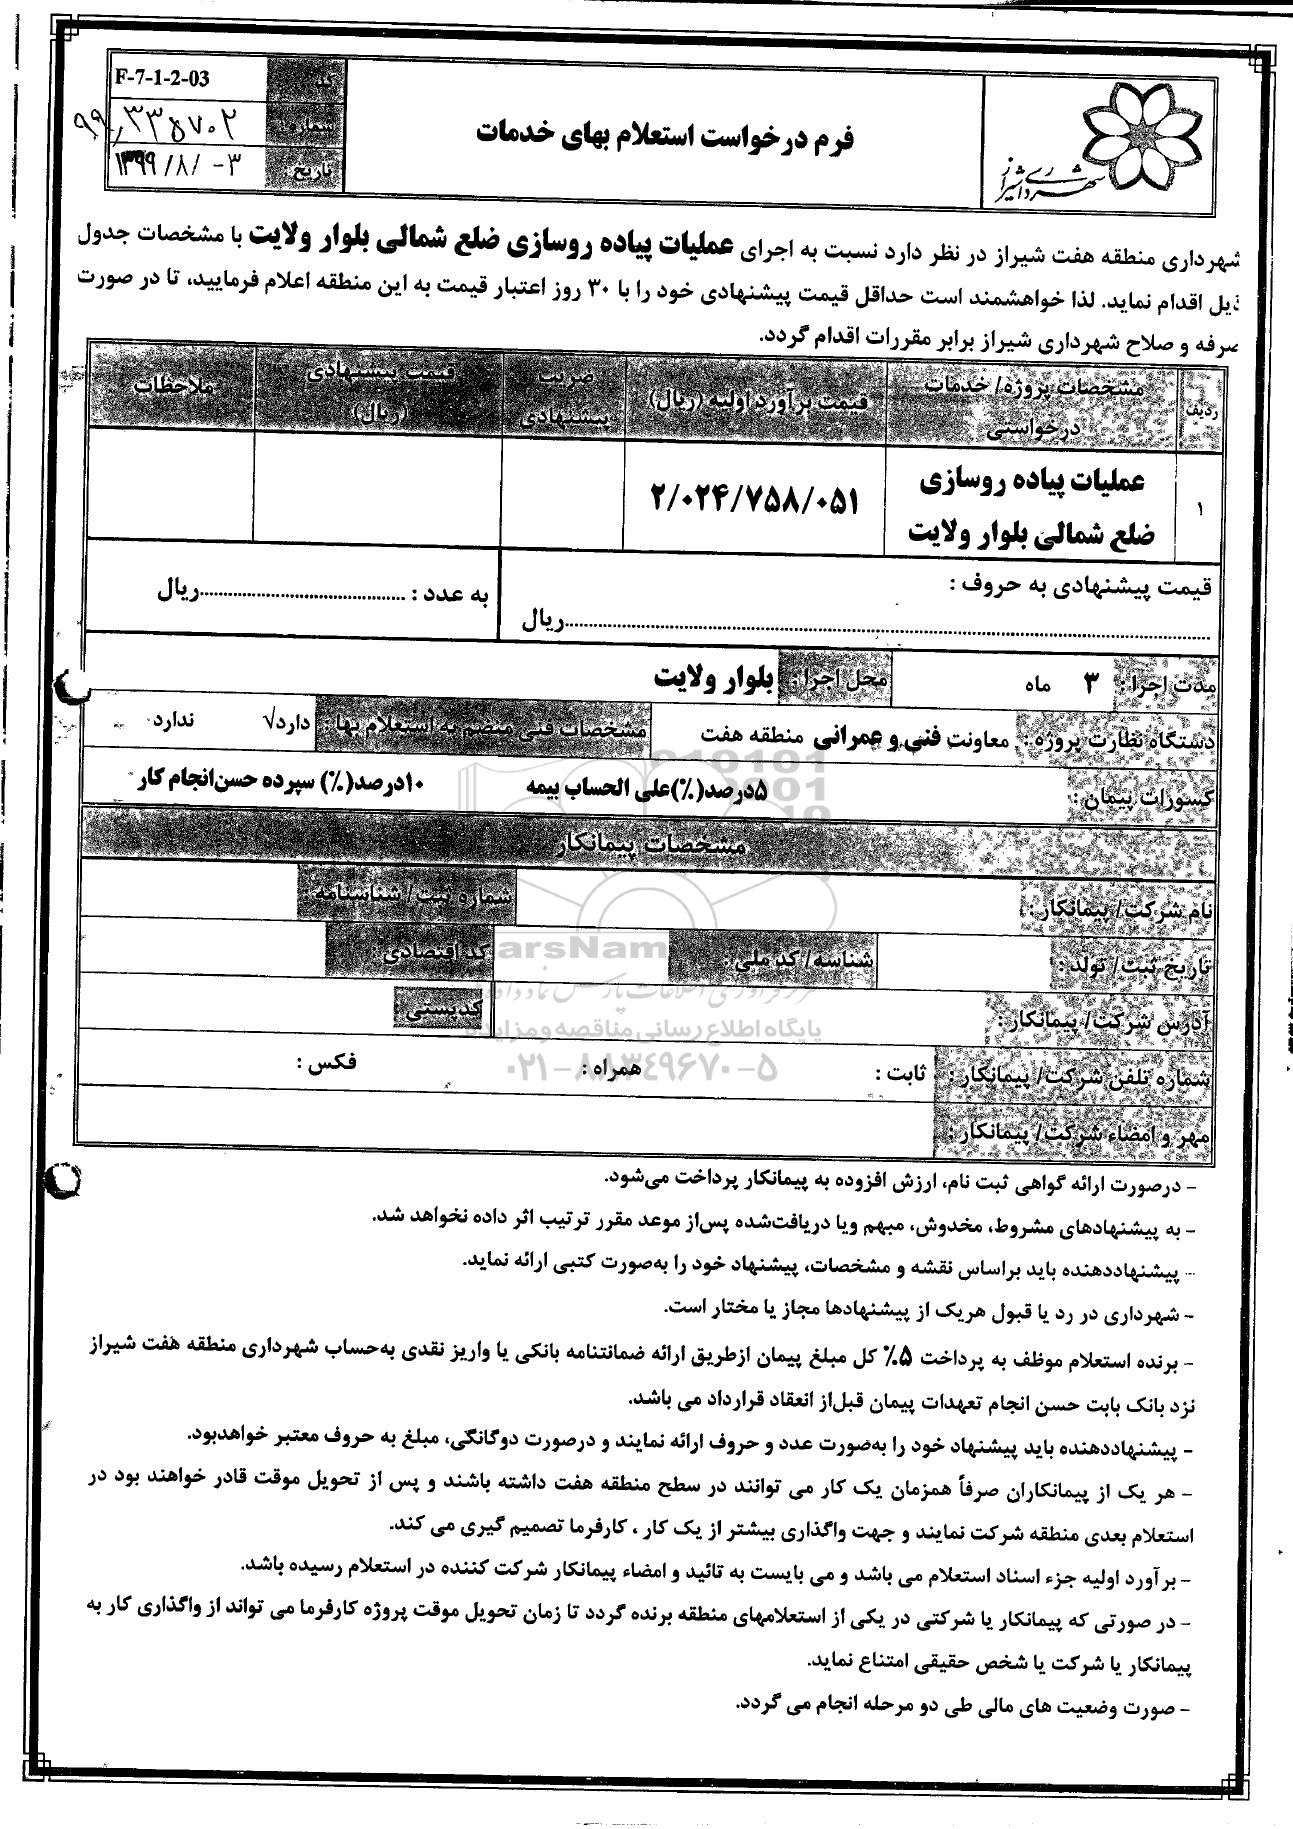 شهرداری شیراز
فرم درخواست استعلام بهای خدمات
کد F-7-1-2-03
شماره ۹۹/۳۳۵۷۰۲
تاریخ ۱۳۹۹/۸/۰۳
شهرداری منطقه هفت شیراز در نظر دارد نسبت به اجرای عملیات پیاده روسازی ضلع شمالی بلوار ولایت با مشخصات جدول
ذیل اقدام نماید. لذا خواهشمند است حداقل قیمت پیشنهادی خود را با ۳۰ روز اعتبار قیمت به این منطقه اعلام فرمایید، تا در صورت
صرفه و صلاح شهرداری شیراز برابر مقررات اقدام گردد.
ردیف مشخصات پروژه/ خدمات درخواستی قیمت برآورد اولیه (ریال) ضریب پیشنهادی قیمت پیشنهادی (ریال) ملاحظات
۱ عملیات پیاده روسازی ضلع شمالی بلوار ولایت ۲/۰۲۴/۷۵۸/۰۵۱
قیمت پیشنهادی به حروف :
..........ریال به عدد : ..........ریال
مدت اجرا : ۳ ماه محل اجرا : بلوار ولایت
دستگاه نظارت پروژه : معاونت فنی و عمرانی منطقه هفت مشخصات فنی منضم به استعلام بها : دارد√ ندارد
کسورات پیمان : ۵درصد(%)علی الحساب بیمه ۱۰درصد(%) سپرده حسن‌انجام کار
مشخصات پیمانکار
نام شرکت/ پیمانکار : شماره ثبت/ شناسنامه :
تاریخ ثبت/ تولد : شناسه/ کد ملی : کد اقتصادی :
آدرس شرکت/ پیمانکار : کدپستی :
شماره تلفن شرکت/ پیمانکار : ثابت : همراه : فکس :
مهر و امضاء شرکت/ پیمانکار :
پایگاه اطلاع رسانی مناقصه و مزایده
۰۲۱-۸۸۳۴۹۶۷۰-۵
- درصورت ارائه گواهی ثبت نام، ارزش افزوده به پیمانکار پرداخت می‌شود.
- به پیشنهادهای مشروط، مخدوش، مبهم ویا دریافت‌شده پس‌از موعد مقرر ترتیب اثر داده نخواهد شد.
- پیشنهاددهنده باید براساس نقشه و مشخصات، پیشنهاد خود را به‌صورت کتبی ارائه نماید.
- شهرداری در رد یا قبول هریک از پیشنهادها مجاز یا مختار است.
- برنده استعلام موظف به پرداخت ۵% کل مبلغ پیمان ازطریق ارائه ضمانتنامه بانکی یا واریز نقدی به‌حساب شهرداری منطقه هفت شیراز
نزد بانک بابت حسن انجام تعهدات پیمان قبل‌از انعقاد قرارداد می باشد.
- پیشنهاددهنده باید پیشنهاد خود را به‌صورت عدد و حروف ارائه نمایند و درصورت دوگانگی، مبلغ به حروف معتبر خواهدبود.
- هر یک از پیمانکاران صرفاً همزمان یک کار می توانند در سطح منطقه هفت داشته باشند و پس از تحویل موقت قادر خواهند بود در
استعلام بعدی منطقه شرکت نمایند و جهت واگذاری بیشتر از یک کار ، کارفرما تصمیم گیری می کند.
- برآورد اولیه جزء اسناد استعلام می باشد و می بایست به تائید و امضاء پیمانکار شرکت کننده در استعلام رسیده باشد.
- در صورتی که پیمانکار یا شرکتی در یکی از استعلامهای منطقه برنده گردد تا زمان تحویل موقت پروژه کارفرما می تواند از واگذاری کار به
پیمانکار یا شرکت یا شخص حقیقی امتناع نماید.
- صورت وضعیت های مالی طی دو مرحله انجام می گردد.